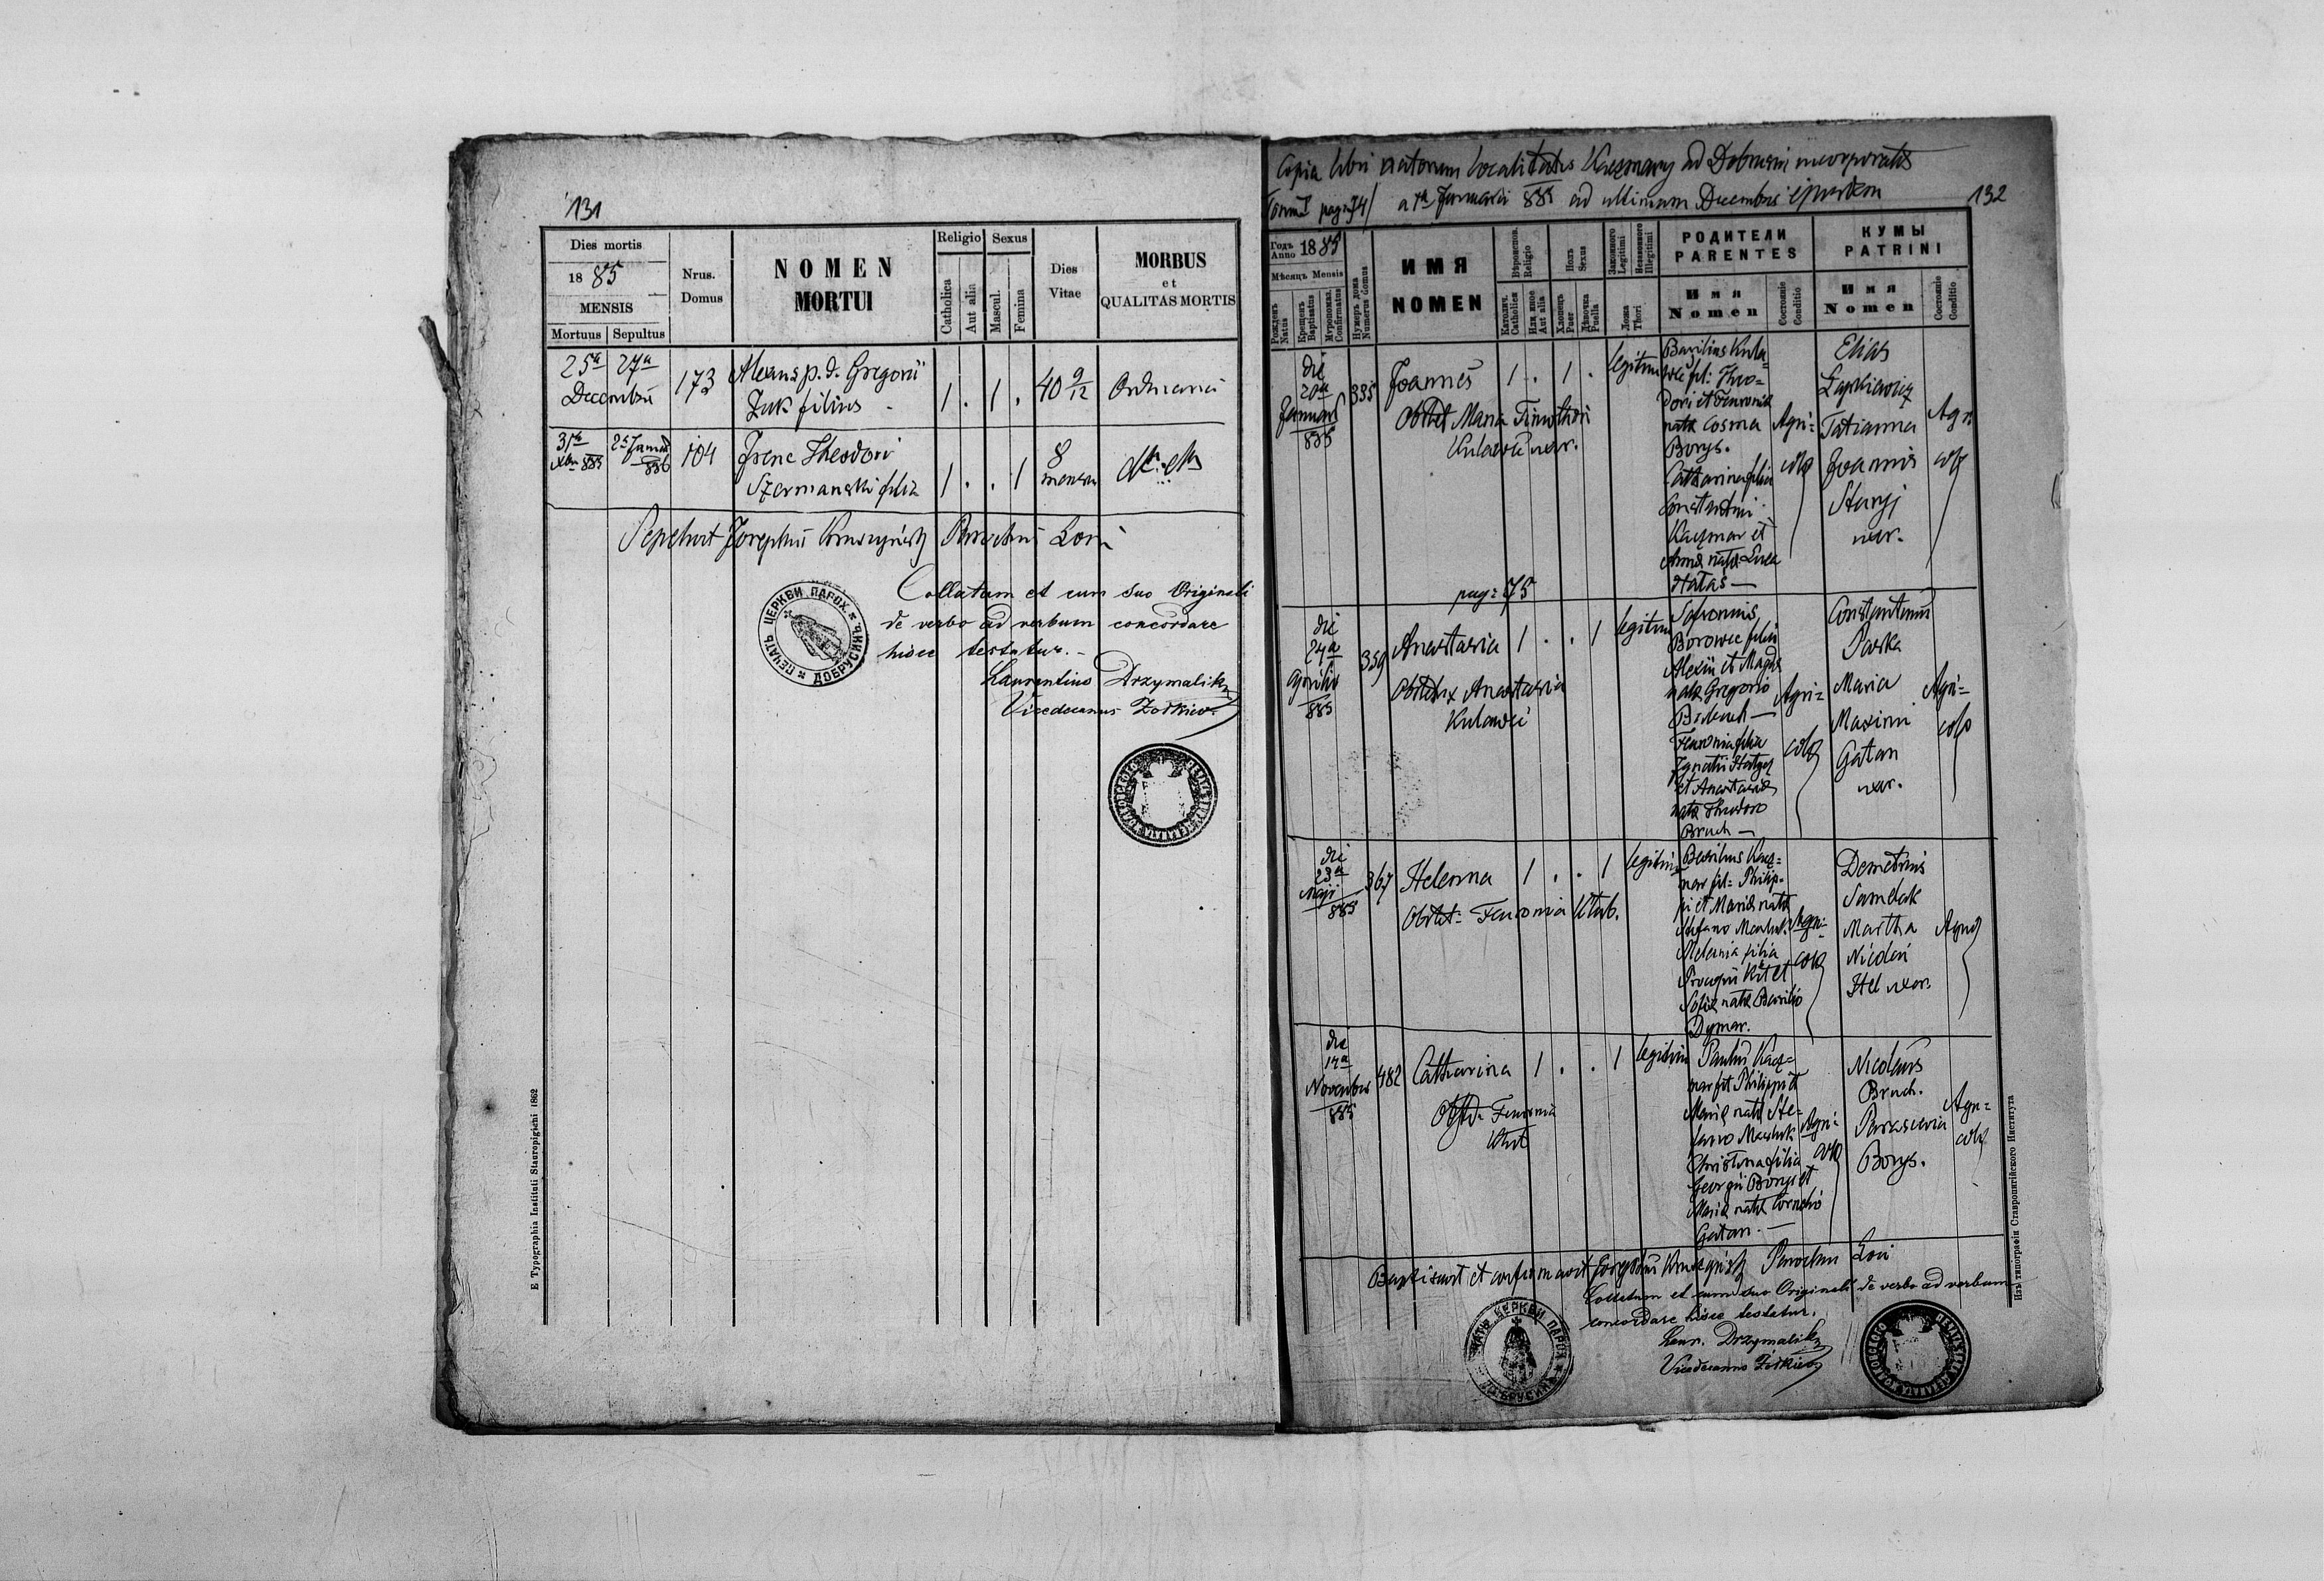 131
Dies mortis
1885
MENSIS
Mortuus Sepultus
Nrus. Domus
NOMEN MORTUI
Religio
Catholica
Aut alia
Sexus
Mascul.
Femina
Dies Vitae
MORBUS
et
QUALITAS MORTIS
25a 27a
Decembris
173
p. d. Gregorii
Żuk filius
1 . 1 .
40 9/12
Ordinaria
31a Xbr 885
2a Januarii 886
104
Irene Theodori
Szermanski filia
1 . . 1
8
mensium
Sepelivit Josephus Parochus Loci
Collatum et cum suo Originali
de verbo ad verbum concordare
hisce testatur. -
Laurentius Drzymalik
Vicedecanus
ПЕЧАТЬ ЦЕРКВИ ПАРОХ. ДОБРУСИНЪ
E Typographia Instituti Stauropigiani 1862
Copia libri natorum localitatis Kaczmary ad Dobrusin incorporatis
Tom I pag: 74/ a 1a Januarii 885 ad ultimam Decembris ejusdem
132
Годъ Anno 1885
Мѣсяць Mensis
Рожденъ Natus
Крещенъ Baptisatus
Муропомаз. Confirmatus
Нумеръ дома Numerus domus
ИМЯ
NOMEN
Вѣроиспов. Religio
Католич. Catholica
Или иное Aut alia
Полъ Sexus
Хлопецъ Puer
Дѣвочка Puella
Законного Legitimi
Незаконного Illegitimi
Ложа Thori
РОДИТЕЛИ
PARENTES
Имя
Nomen
Состояніе Conditio
КУМЫ
PATRINI
Имя
Nomen
Состояніе Conditio
die
20a
Januarii
885
335
Joannes
1 . 1 .
Obstet Maria Timothei
uxor.
legitimi
Basilius
fil: Theo=
dori et Feuronia
nata Cosma
Borys.
Catharina filia
Constantini
Kaczmar et
Anna nata Luca
Hataś —
Agri=
colae
Elias
Łapkiewicz
Tatianna
Joannis
Staryj
uxor.
Agri
colae
pag: 75
die
24a
Aprilis
885
359
Anastasia
1 . . 1
Obstetrix Anastasia
legitimi
Sofronius
Borowec filius
Alexii et Magda
nata Gregorio
Feuronia filia
Ignatii
et Anastasia
nata Theodoro
Bruch —
Agri=
colae
Constantinus
Paska
Maria
Maximi
Gatan
uxor.
Agri=
colae
die
23a
Maji
885
367
Helenna
1 . . 1
Obstet: Feuronia
legitimi
Basilius Kacz=
mar fil: Philip=
pi et Maria nata
Stefano
Melania filia
Procopii et
Sofia nata Basilio
Dymar.
Agri=
colae
Demetrius
Sumelak
Martha
Nicolai
uxor.
die
17a
Novembris
885
482
Catharina
1 . . 1
Obst. Feuronia
legitimi
Paulus Kacz=
mar fil Philippi et
Maria nata Ste=
fano
Christina filia
Georgii Borys et
Maria nata Cornelio
Gatan. —
Agri=
colae
Nicolaus
Bruch.
Parascevia
Borys.
Agri=
colae
Baptisavit et confirmavit Josephus Parochus Loci
Collatum et cum suo Originali de verbo ad verbum
concordare hisce testatur.
Laur. Drzymalik
Vicedecanus
ПЕЧАТЬ ЦЕРКВИ ПАРОХ. ДОБРУСИНЪ
Изъ типографіи Ставропигійского Института